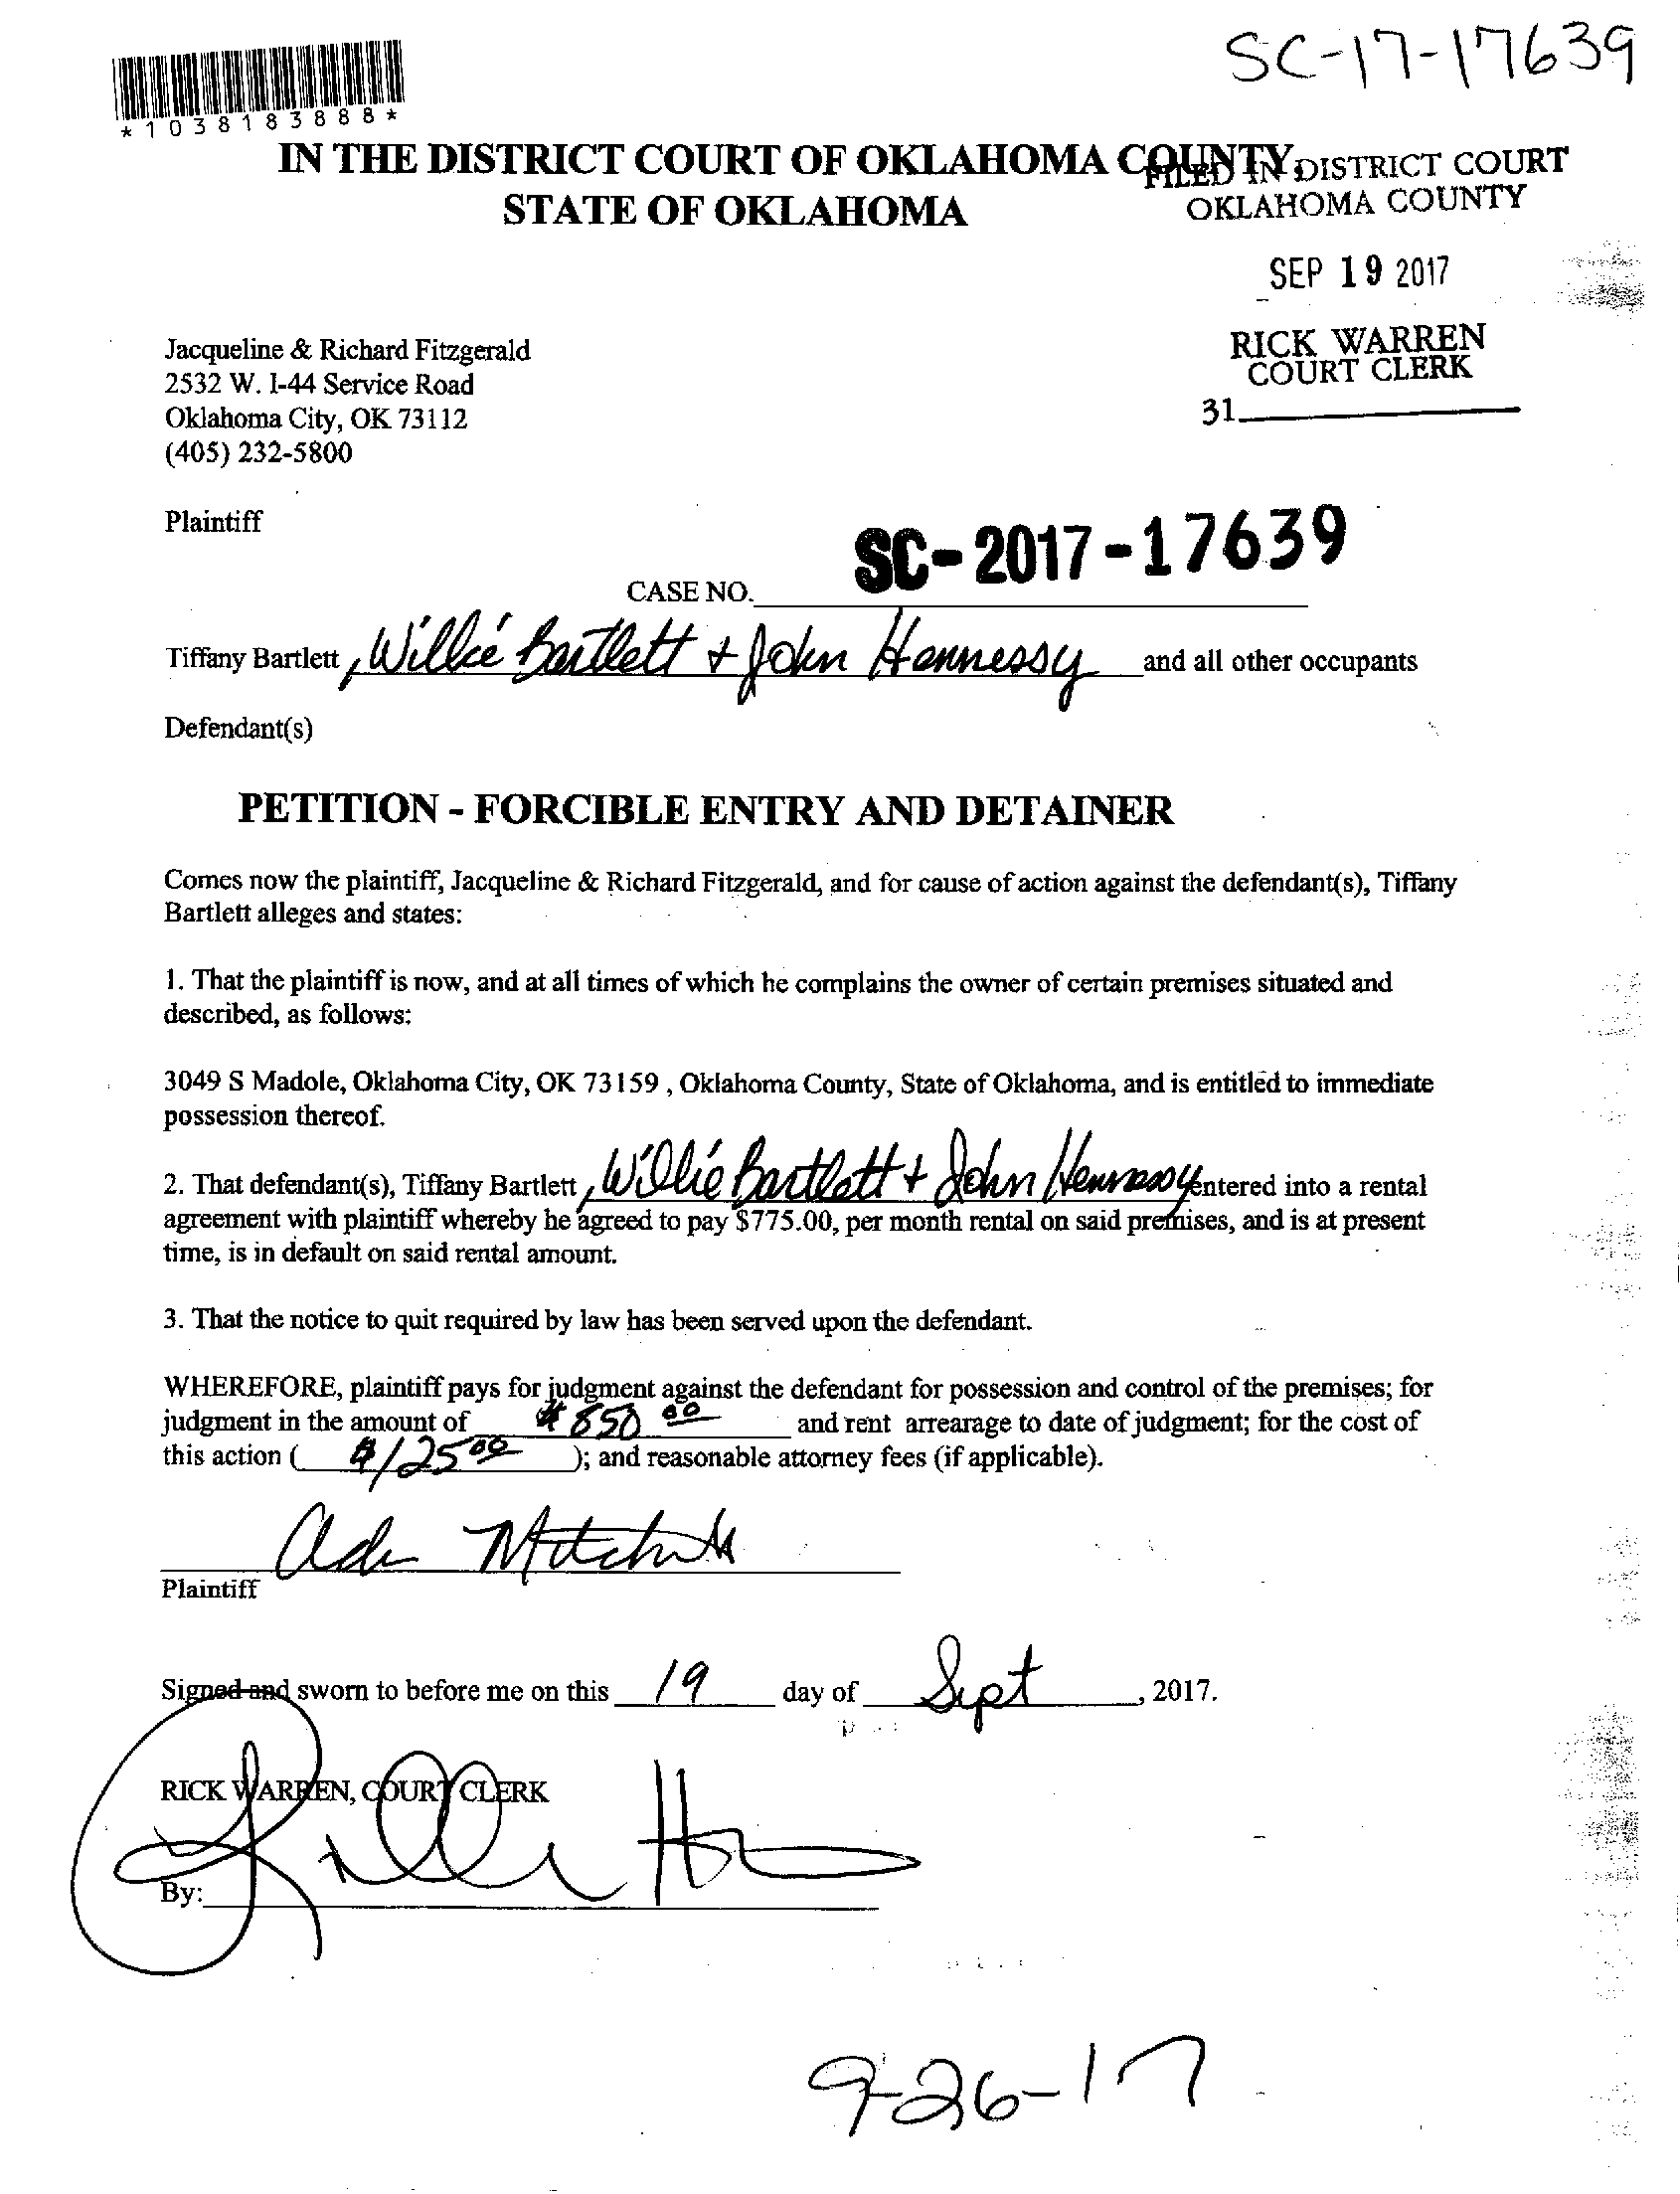 SC-17-17639
*1038183888*
IN THE DISTRICT COURT OF OKLAHOMA COUNTY
STATE OF OKLAHOMA
FILED IN DISTRICT COURT
OKLAHOMA COUNTY
SEP 19 2017
RICK WARREN
COURT CLERK
31
Jacqueline & Richard Fitzgerald
2532 W. I-44 Service Road
Oklahoma City, OK 73112
(405) 232-5800
Plaintiff
CASE NO. SC-2017-17639
Tiffany Bartlett, Willie Bartlett + John Hennessy and all other occupants
Defendant(s)
PETITION - FORCIBLE ENTRY AND DETAINER
Comes now the plaintiff, Jacqueline & Richard Fitzgerald, and for cause of action against the defendant(s), Tiffany
Bartlett alleges and states:
1. That the plaintiff is now, and at all times of which he complains the owner of certain premises situated and
described, as follows:
3049 S Madole, Oklahoma City, OK 73159 , Oklahoma County, State of Oklahoma, and is entitled to immediate
possession thereof.
2. That defendant(s), Tiffany Bartlett, Willie Bartlett + John Hennessy entered into a rental
agreement with plaintiff whereby he agreed to pay $775.00, per month rental on said premises, and is at present
time, is in default on said rental amount.
3. That the notice to quit required by law has been served upon the defendant.
WHEREFORE, plaintiff pays for judgment against the defendant for possession and control of the premises; for
judgment in the amount of $850 00 and rent arrearage to date of judgment; for the cost of
this action ( $125 00 ); and reasonable attorney fees (if applicable).
Plaintiff
Signed and sworn to before me on this 19 day of Sept, 2017.
RICK WARREN, COURT CLERK
By:
9-26-17